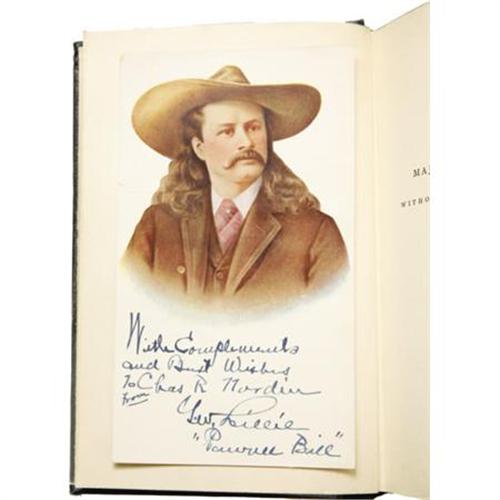 With Complements
and Best Wishes
To Chas R Nordin
from
G.W. Lillie
"Pawnee Bill"
MA
WITHO